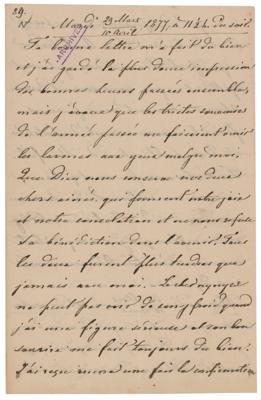 29.
N° Mardi 29 Mars / 10 Avril 1877, à 11 ½ h. du soir.
ARCHIVES
Ta bonne lettre m'a fait du bien
et j'ai gardé la plus douce impression
de bonnes heures passées ensemble,
mais j'avoue que les tristes souvenirs
de l'année passée me faisaient venir
les larmes aux yeux malgré moi.
Que Dieu nous conserve nos deux
chers aînés, qui forment notre joie
et notre consolation et ne nous refuse
Sa bénédiction dans l'avenir. Tous
les deux furent plus tendres que
jamais avec moi.
ne peut pas voir de sang froid quand
j'ai une figure sérieuse et son bon
sourire me fait toujours du bien!
J'ai reçu encore une fois la confirmation